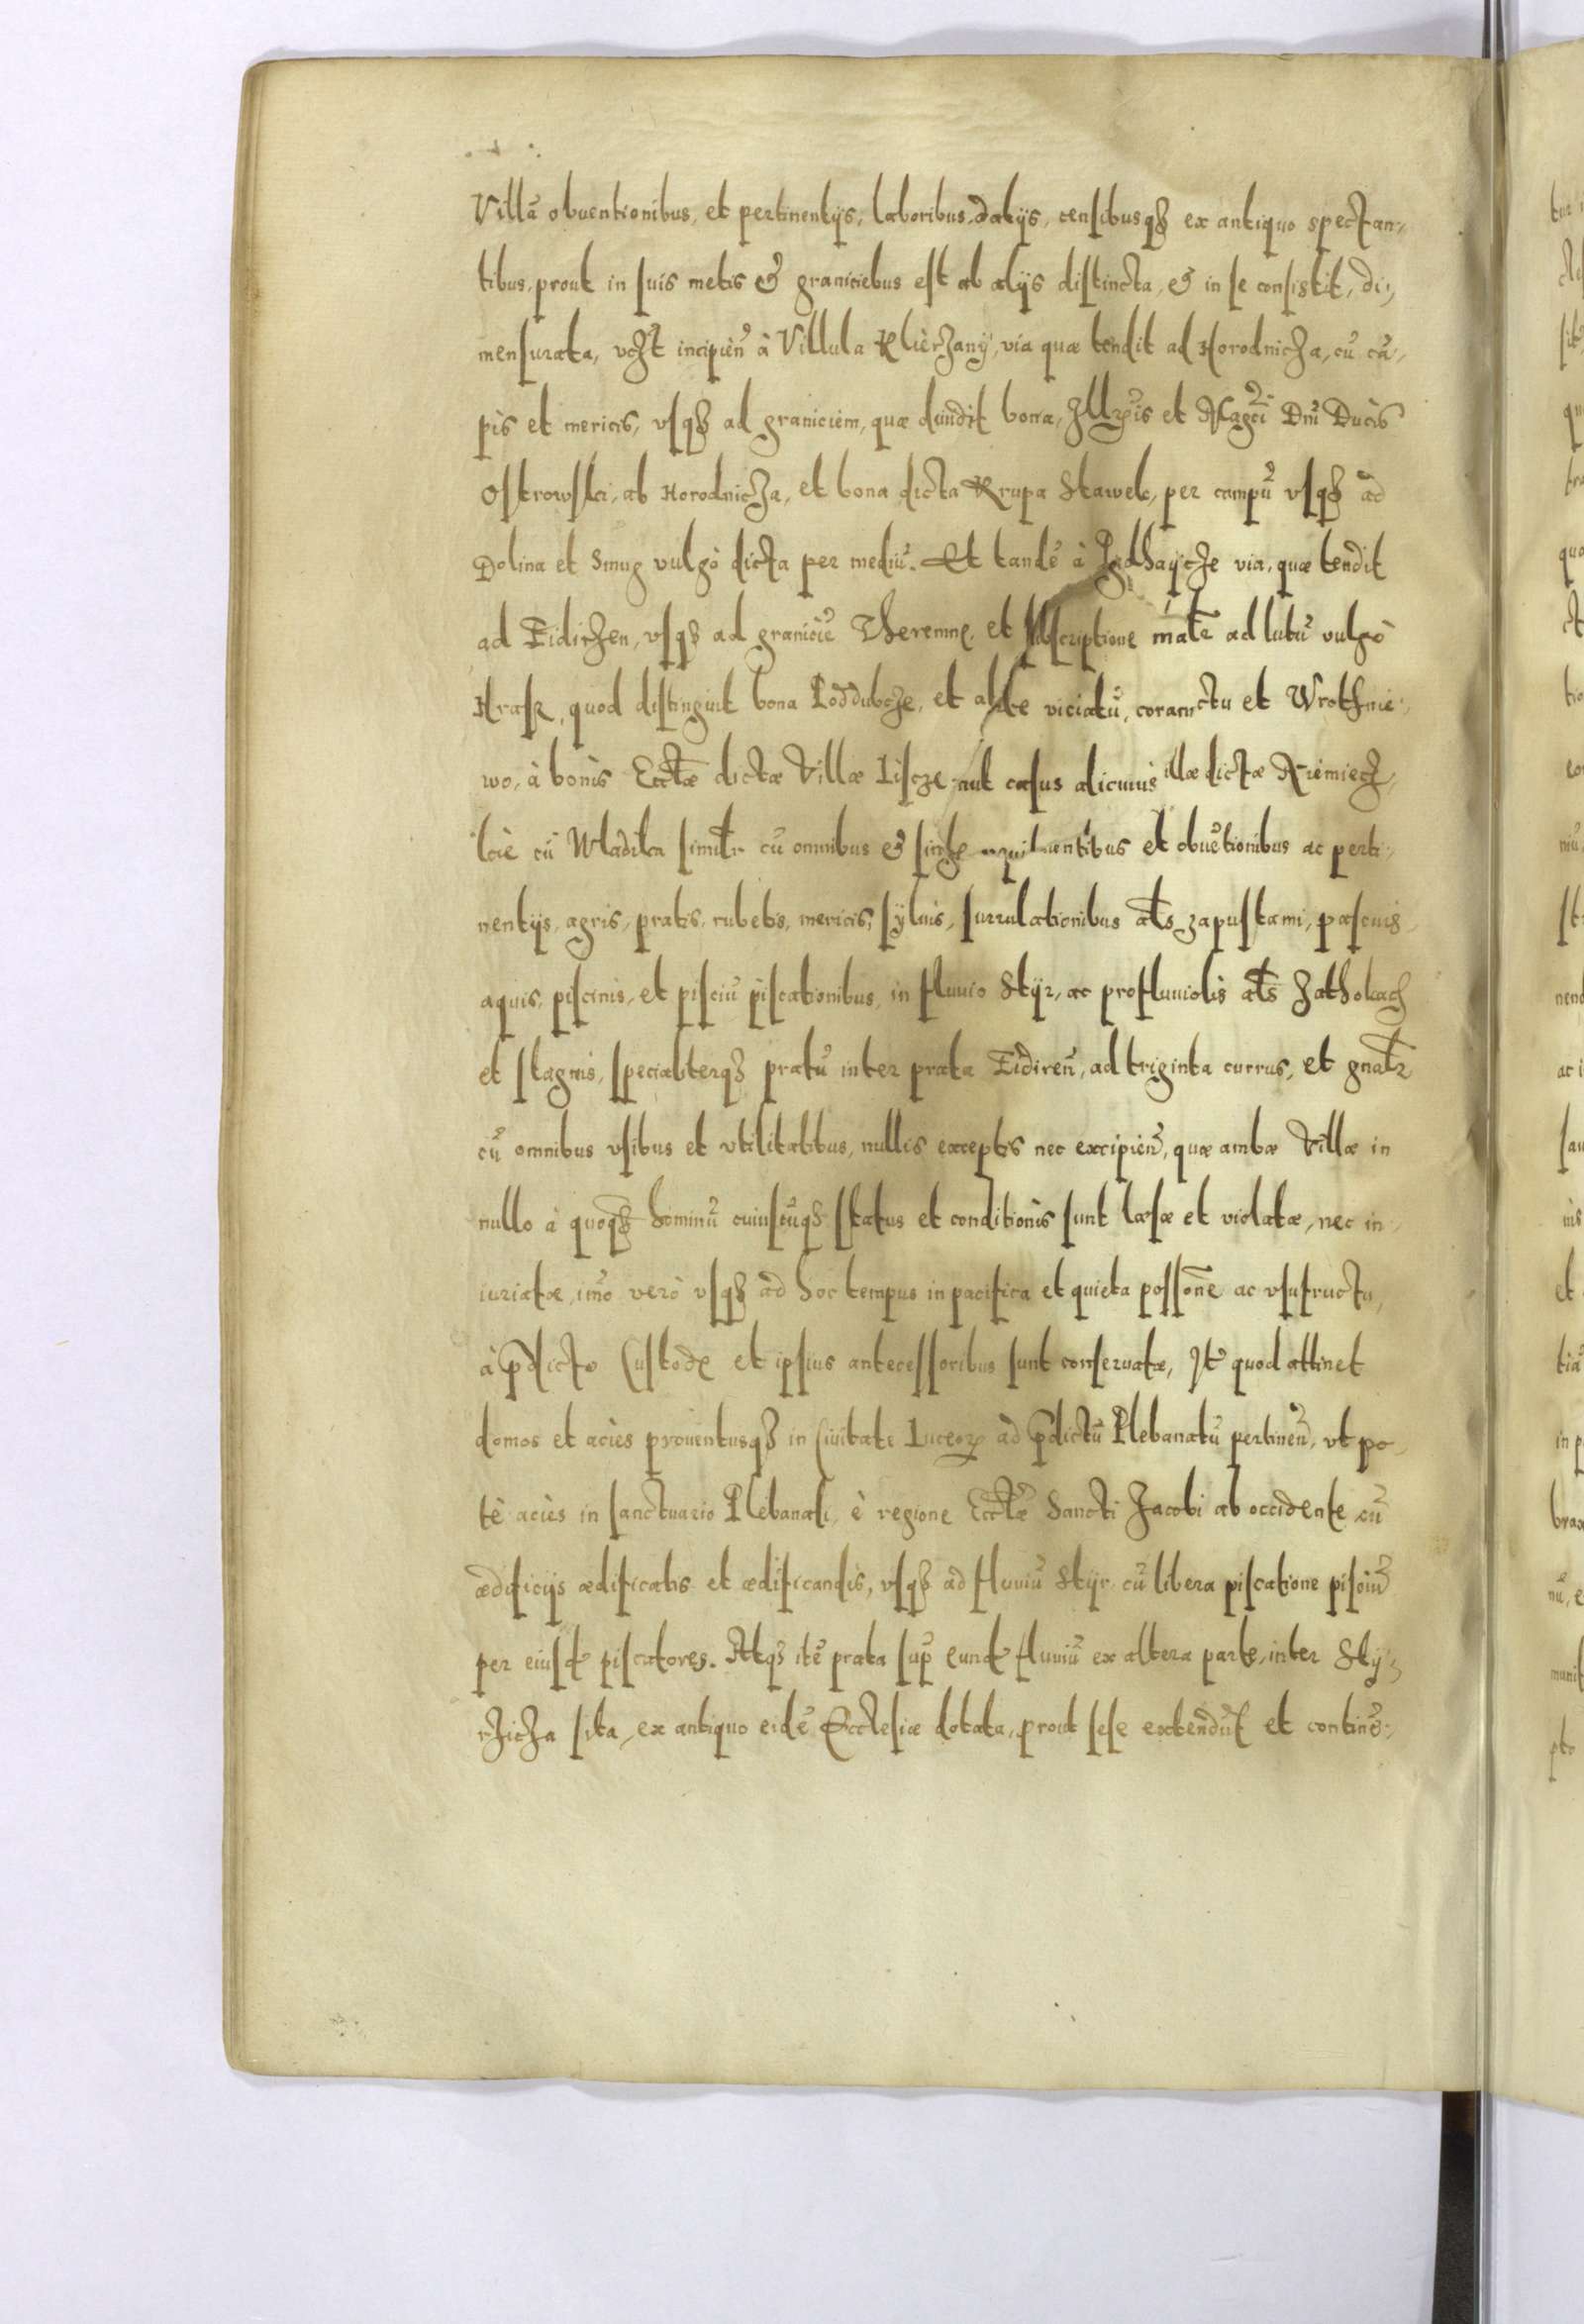 Villã obuentionibus, et pertinentijs, laboribus, datijs, censibusq₃ ex antiquo spectan-
tibus, prout in suis metis & graniciebus est ab alijs distincta, & in se consistit, di-
mensurata, vcz̃t incipieñ à Villula Klierzany, via quæ tendit ad Horodnicza, cũ cã-
pis et mericis, vsq₃ ad graniciem, quæ diuidit bona, Illr̃is et Magc̃i Dñi Ducis
Ostrowski, ab Horodnicza, et bona dicta Krupa Stawek, per campũ vsq₃ ad
Dolina et Smug vulgò dicta per mediũ. Et tandẽ à via, quæ tendit
ad Eidiczen, vsq₃ ad graniciẽ Theremne, et ad lutũ vulgò
Hrask, quod distinguit bona Poddubcze, et viciatũ, et Wrothnie-
wo, à bonis Eccl̃æ dictæ Villæ Liscze, aut casus alicuius illæ dictæ Kniemiecz-
kie cũ Wladika simil̃r cũ omnibus & et obuẽtionibus ac perti-
nentijs, agris, pratis, rubetis, mericis, syluis, surrulationibus al̃s zapustami, pascuis
aquis, piscinis, et pisciũ piscationibus, in fluuio Styr, ac profluuiolis al̃s Zathokach
et stagnis, specialiterq₃ pratũ inter prata Eidireñ, ad triginta currus, et gnal̃r
cũ omnibus vsibus et vtilitatibus, nullis exceptis nec excipieñ, quæ ambæ Villæ in
nullo à quoq₃ hominũ cuiuscũq₃ status et conditionis sunt læsæ et violatæ, nec in-
iuriatæ, imõ verò vsq₃ ad hoc tempus in pacifica et quieta possõne ac vsufructu,
à p̃dicto Custode et ipsius antecessoribus sunt conseruatæ, Itẽ quod attinet
domos et acies prouentusq₃ in Ciuitate Luceor̃ ad p̃dictũ Plebanatũ pertineñ, vt po-
tè acies in sanctuario Plebanali, è regione Eccl̃æ Sancti Jacobi ab occidente cũ
ædificijs ædificatis et ædificandis, vsq₃ ad fluuiũ Styr cũ libera piscatione pisciũ
per eiusd̃ piscatores. Atq₃ itẽ prata sup̃ eund̃ fluuiũ ex altera parte, inter Sty-
rzicza sita, ex antiquo eidẽ Ecclesiæ dotata, prout sese extendũt et continẽ-